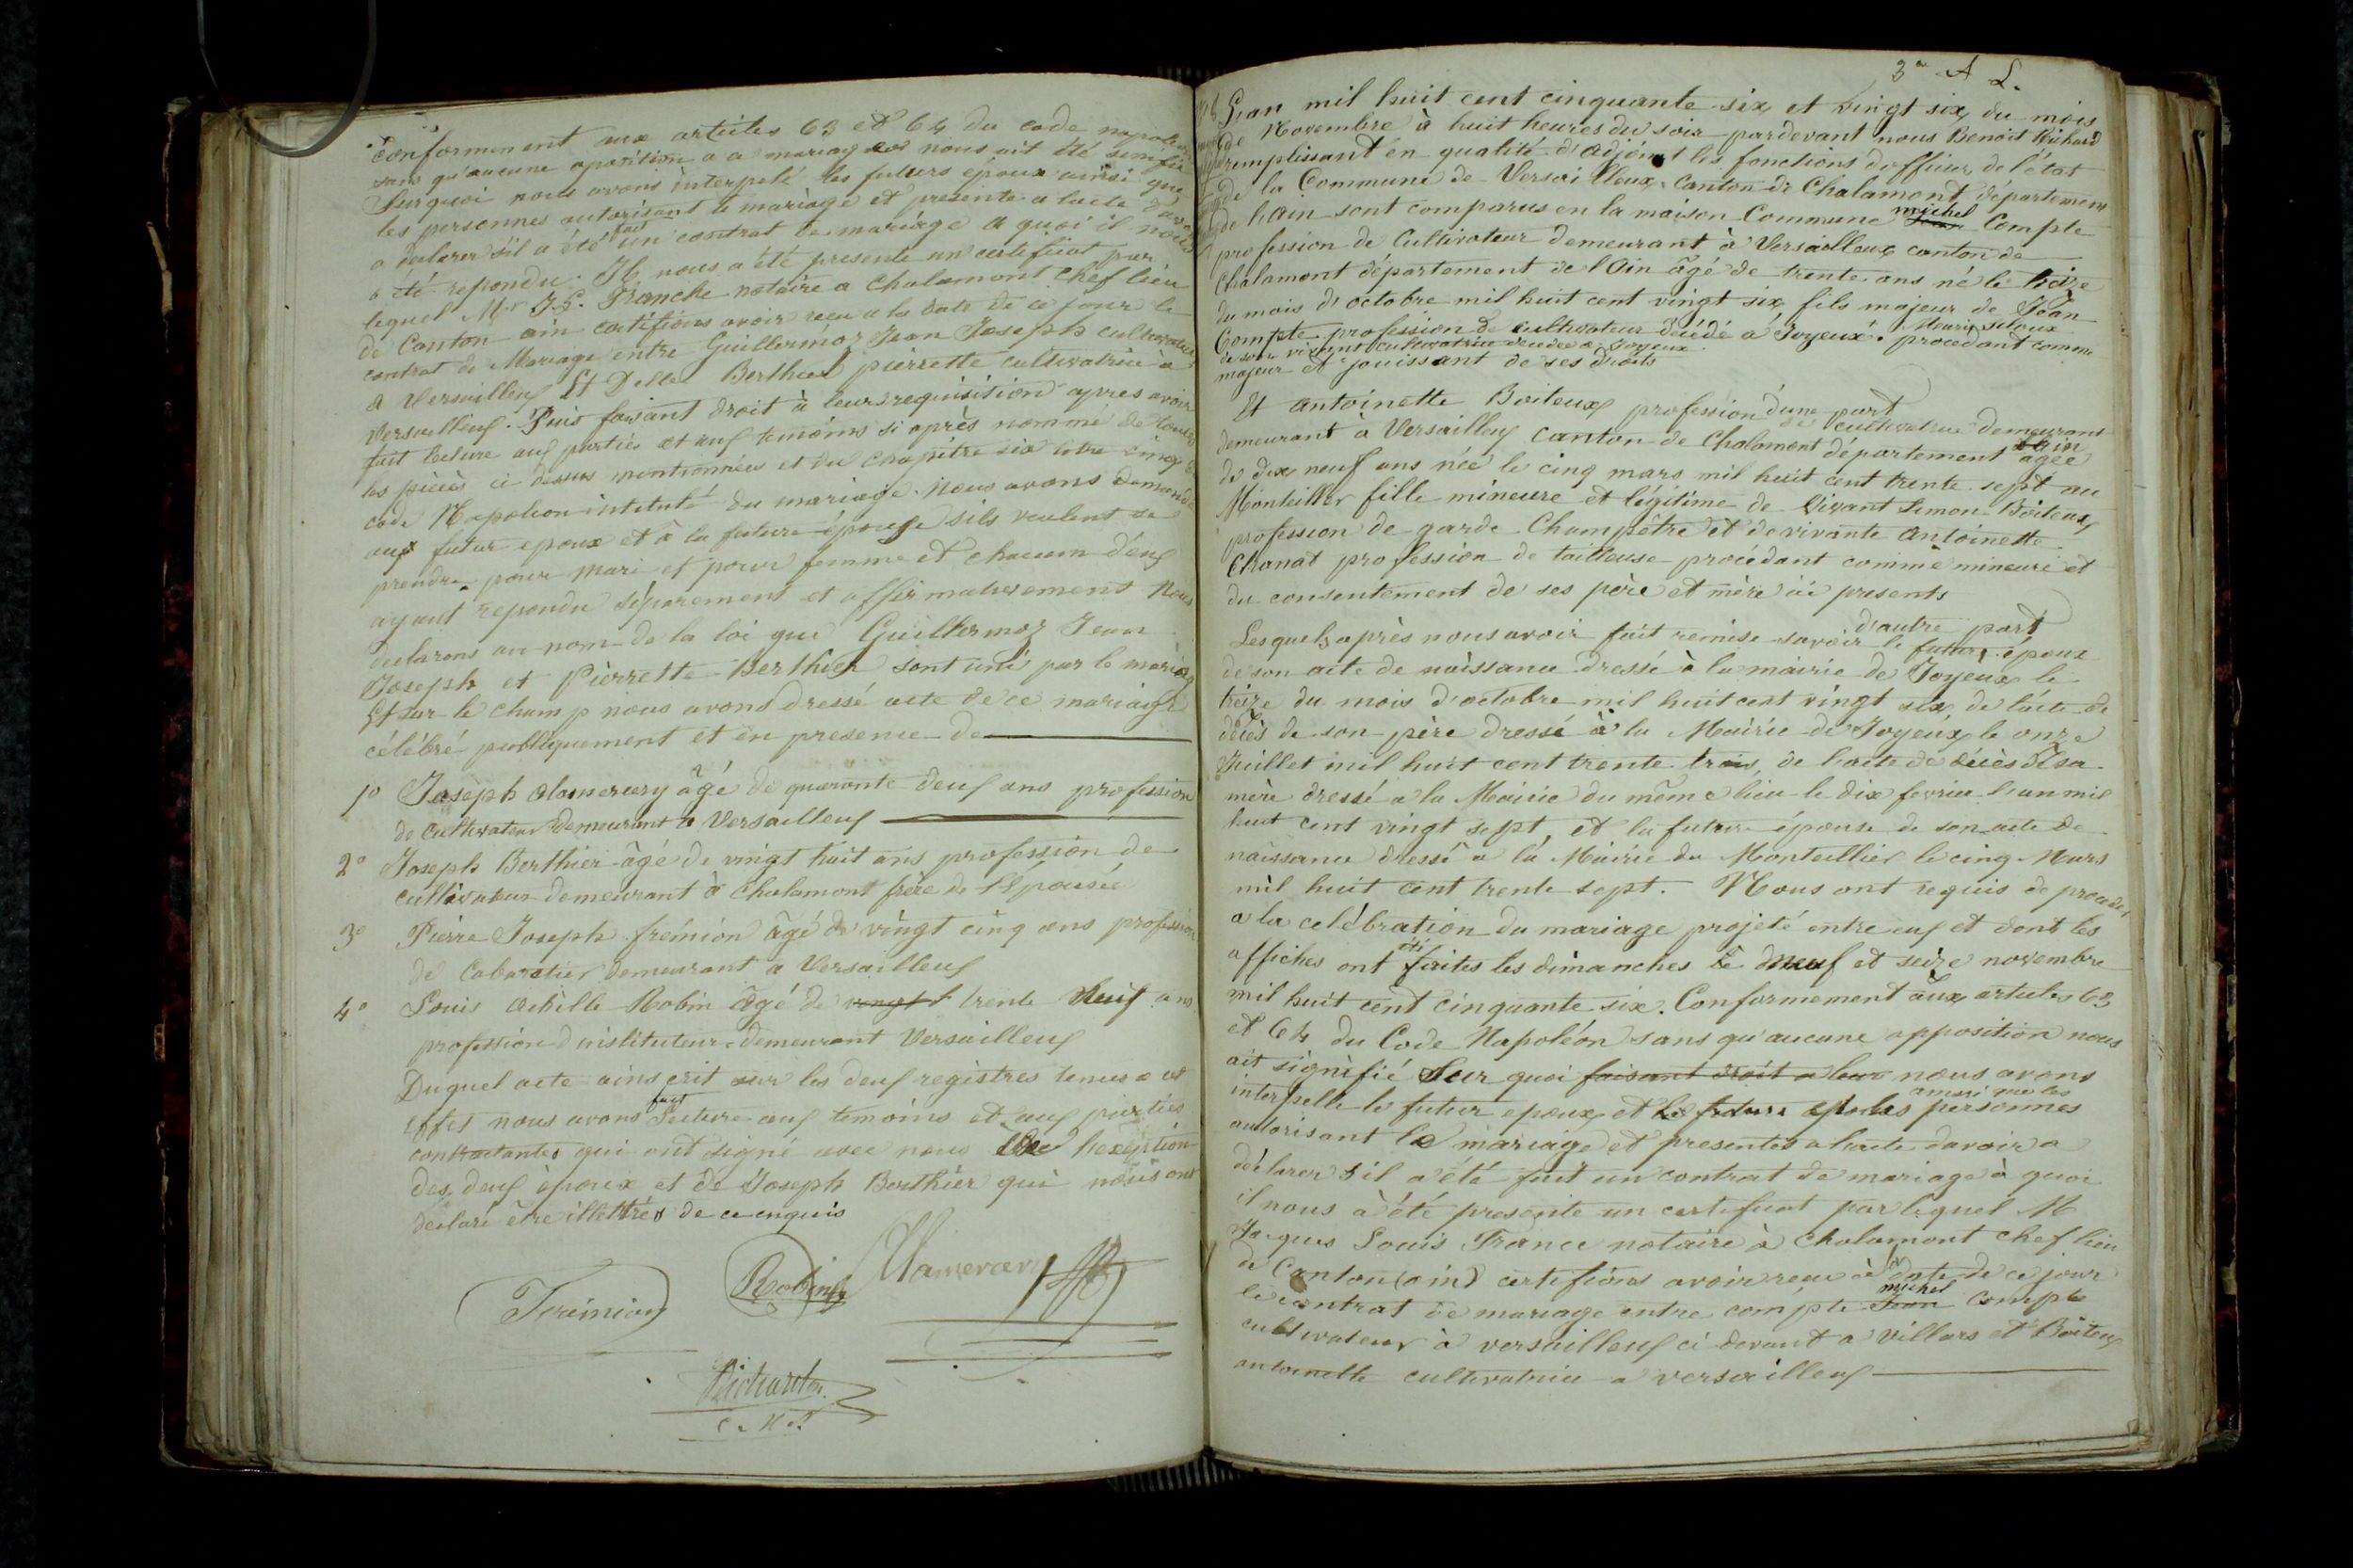 conformement aux articles 63 et 64 du code napoléon
sans qu'aucune oposition a ce mariage nous ait été signifié
Sur quoi nous avons interpelé les futurs époux ainsi que
les personnes autorisant le mariage et presente a lacte d'avoir
a declarer s'il a été fait un contrat de mariage a quoi il nous
a été repondu. Il nous a été presente un certificat par
lequel Mr J.L. Franche notaire a Chalamont Chef lieu
de Canton ain certifions avoir recu a la date de ce jour le
contrat de Mariage entre Guillermoz Jean Joseph cultivateur
a Versailleux Et Delle Berthier pierrette cultivatrice à
Versailleux. Puis faisant droit à leurs requisition apres avoir
fait lecture aux parties et aux temoins si après nommé de toutes
les pièces ci dessus mentionnées et du chapitre six titre cinq du
code Napoleon intitulé du mariage. Nous avons demandé
aux futur epoux et à la future épouse sils veulent se
prendre pour mari et pour femme et chacun d'eux
ayant repondu séparement et affirmativement Nous
declarons au nom de la loi que Guillermoz Jean
Joseph et Pierrette Berthier sont uni par le mariage
Et sur le champ nous avons dressé acte de ce mariage
célébré publiquement et en presence de
1° Joseph Alamercery âgé de quarante deux ans profession
de cultivateur demeurant a Versailleux
2° Joseph Berthier âgé de vingt huit ans profession de
cultivateur demeurant à Chalamont frère de l'Epousée
3° Pierre Joseph fréminion âgé de vingt cinq ans profession
de Cabaretier demeurant a Versailleux
4° Louis Achille Robin âgé de vingt trente Neuf ans
profession d'instituteur demeurant Versailleux
Duquel acte ains ecrit sur les deux registres tenus a cet
effet nous avons fait Lecture aux temoins et aux parties
contractantes qui ont signé avec nous l'exception
des deux époux et de Joseph Berthier qui nous ont
déclaré être illettrés de ce enquis
Robin Alamercery
Fréminion
Richard
3e A L.
L'an mil huit cent cinquante six et vingt six du mois
de Novembre à huit heures du soir pardevant nous Benoit Richard
remplissant en qualité d'Adjoint les fonctions d'officier de l'état
de la Commune de Versailleux canton de Chalamont département
de l'Ain sont comparus en la maison Commune michel Jean Compte
profession de Cultivateur demeurant à Versailleux canton de
Chalamont département de l'Ain âgé de trente ans né le treize
du mois d'octobre mil huit cent vingt six fils majeur de Jean
Compte profession de cultivateur décédé a Joyeux
de son vivant cultivatrice decedee a Joyeux procedant comme
majeur et jouissant de ses droits
d'une part
Et Antoinette Boiteux profession de cultivatrice demeurant
demeurant à Versailleux Canton de Chalamont département ain âgée
de dix neuf ans née le cinq mars mil huit cent trente sept au
Montellier fille mineure et légitime de Vivant Simon Boiteux
profession de garde Champêtre et de vivante Antoinette
Chanat profession de tailleuse procédant comme mineure et
du consentement de ses père et mère ici presents
d'autre part
Lesquels après nous avoir fait remise savoir le futur époux
de son acte de naissance dressé à la mairie de Joyeux le
treize du mois d'octobre mil huit cent vingt six, de l'acte de
décès de son père dressé à la Mairie de Joyeux le onze
Juillet mil huit cent trente trois, de l'acte de décès de sa
mère dressé a la Mairie du même lieu le dix fevrier l'an mil
huit cent vingt sept, et la future épouse de son acte de
naissance dressé a la Mairie du Montellier le cinq Mars
mil huit cent trente sept. Nous ont requis de proceder
a la celébration du mariage projeté entre eux et dont les
affiches ont été faites les dimanches le neuf et seize novembre
mil huit cent cinquante six. Conformement aux articles 63
et 64 du Code Napoléon sans qu'aucune opposition nous
ait signifié Sur quoi faisant droit a leur nous avons
interpellé le futur epoux et la future epouse ainsi que les personnes
autorisant le mariage et presentes a lacte davoir a
déclarer s'il a été fait un contrat de mariage à quoi
il nous à été presente un certificat par lequel M
Jacques Louis Franc notaire à Chalamont chef lieu
de Canton (ain) certifions avoir recu à la date de ce jour
le contrat de mariage entre compte michel Jean Compte
cultivateur à versailleux ci devant a Villars et Boiteux
antoinette cultivatrice a versailleux